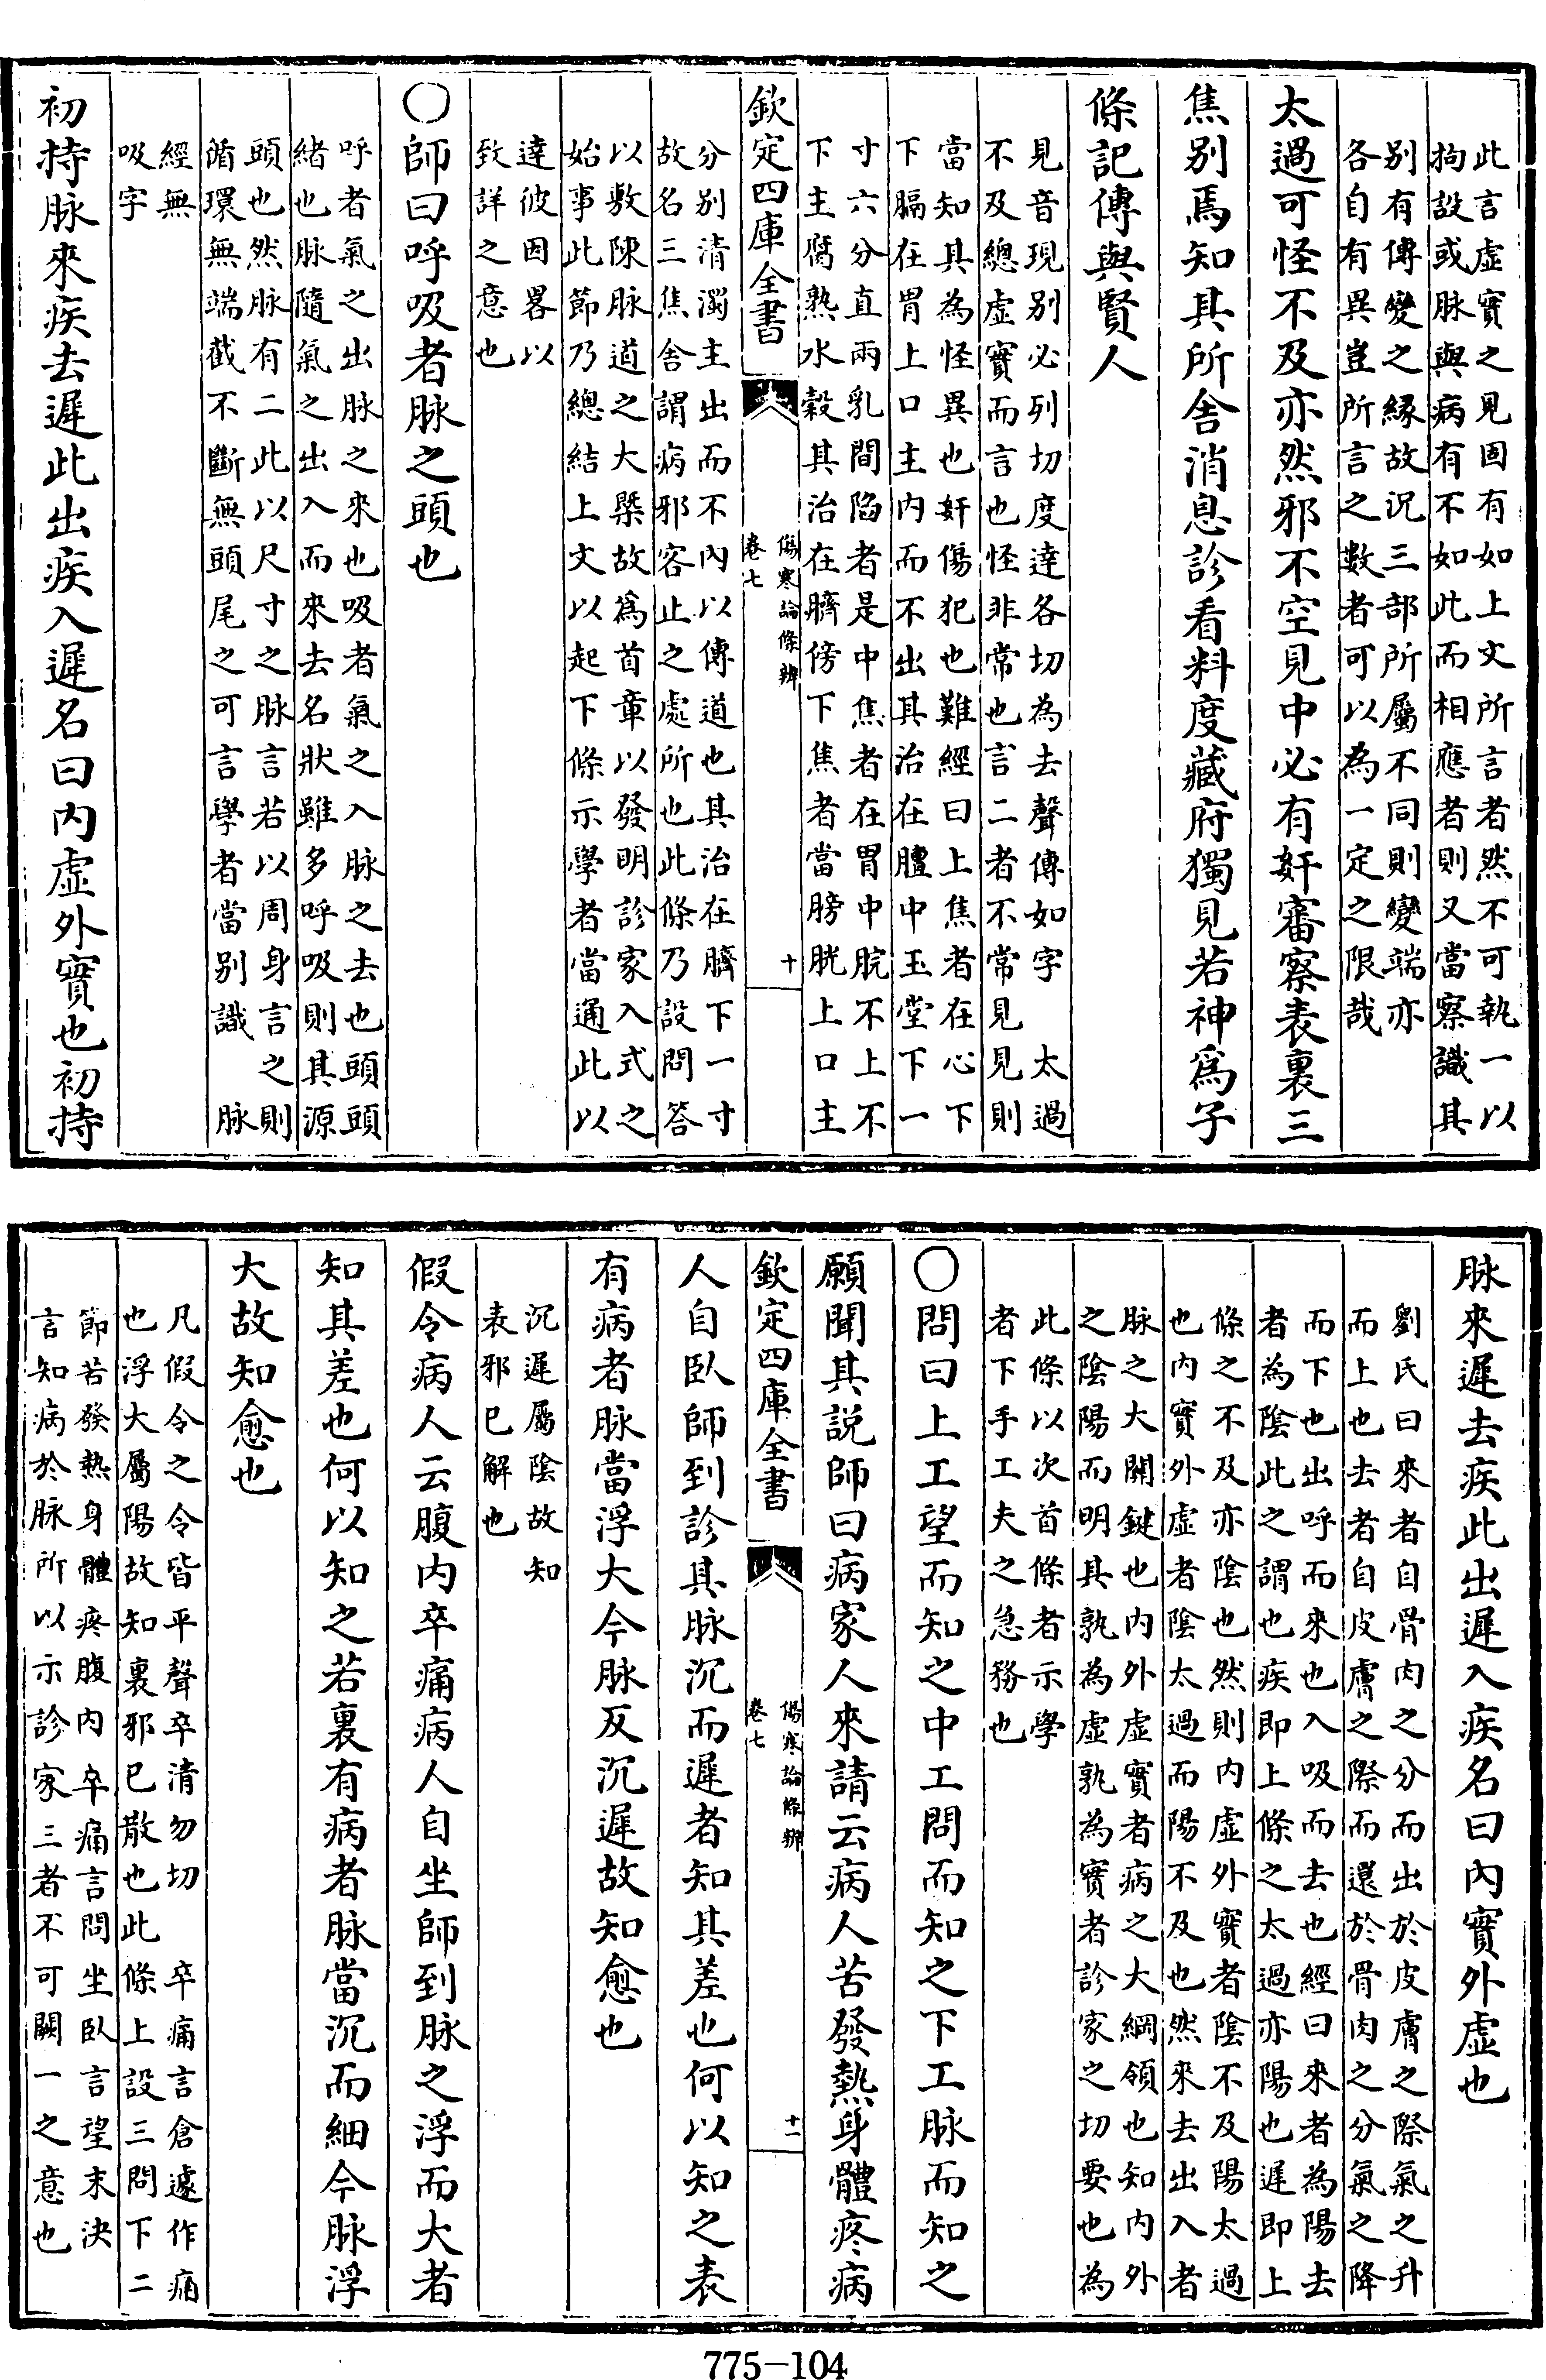 此言虛實之見固有如上文所言者然不可執一以
拘設或脉與病有不如此而相應者則又當察識其
別有傳變之緣故況三部所屬不同則變端亦
各自有異豈所言之數者可以為一定之限哉
太過可怪不及亦然邪不空見中必有奸審察表裏三
焦別焉知其所舍消息診看料度藏府獨見若神爲子
條記傳與賢人
見音現別必列切度達各切為去聲傳如字　太過
不及總虛實而言也怪非常也言二者不常見見則
當知其為怪異也奸傷犯也難經曰上焦者在心下
下膈在胃上口主內而不出其治在膻中玉堂下一
寸六分直兩乳間陷者是中焦者在胃中脘不上不
下主腐熟水穀其治在臍傍下焦者當膀胱上口主
欽定四庫全書
傷寒論條辨
卷七
十
分別清濁主出而不內以傳道也其治在臍下一寸
故名三焦舍謂病邪容止之處所也此條乃設問答
以敷陳脉道之大槩故爲首章以發明診家入式之
始事此節乃總結上文以起下條示學者當通此以
達彼因畧以
致詳之意也
○師曰呼吸者脉之頭也
呼者氣之出脉之來也吸者氣之入脉之去也頭頭
緒也脉隨氣之出入而來去名狀雖多呼吸則其源
頭也然脉有二此以尺寸之脉言若以周身言之則
循環無端截不斷無頭尾之可言學者當別識　脉
經無
吸字
初持脉來疾去遲此出疾入遲名曰內虛外實也初持
脉來遲去疾此出遲入疾名曰內實外虛也
劉氏曰來者自骨肉之分而出於皮膚之際氣之升
而上也去者自皮膚之際而還於骨肉之分氣之降
而下也出呼而來也入吸而去也經曰來者為陽去
者為陰此之謂也疾即上條之太過亦陽也遲即上
條之不及亦陰也然則內虛外實者陰不及陽太過
也內實外虛者陰太過而陽不及也然來去出入者
脉之大關鍵也內外虛實者病之大綱領也知內外
之陰陽而明其孰為虛孰為實者診家之切要也為
此條以次首條者示學
者下手工夫之急務也
○問曰上工望而知之中工問而知之下工脉而知之
願聞其說師曰病家人來請云病人苦發熱身體疼病
欽定四庫全書
傷寒論條辨
卷七
十一
人自臥師到診其脉沉而遲者知其差也何以知之表
有病者脉當浮大今脉反沉遲故知愈也
沉遲屬陰故知
表邪已解也
假令病人云腹内卒痛病人自坐師到脉之浮而大者
知其差也何以知之若裏有病者脉當沉而細今脉浮
大故知愈也
凡假令之令皆平聲卒清勿切　卒痛言倉遽作痛
也浮大屬陽故知裏邪已散也此條上設三問下二
節苦發熱身體疼腹内卒痛言問坐臥言望末決
言知病於脉所以示診家三者不可闕一之意也
775-104